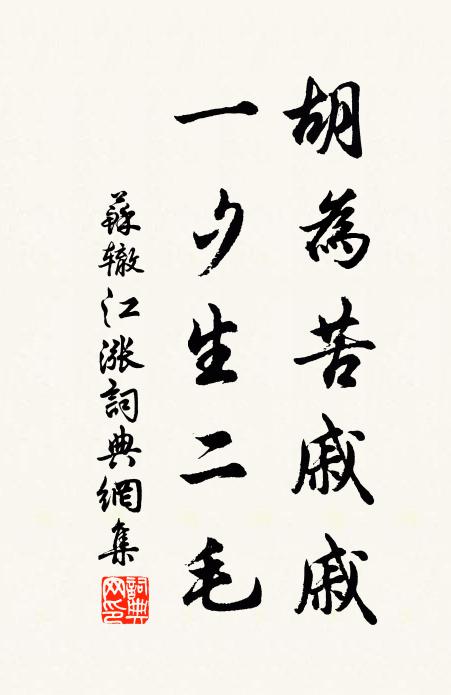 胡為苦戚戚
一夕生二毛
蘇辙江漲詞典網集
詞典網印